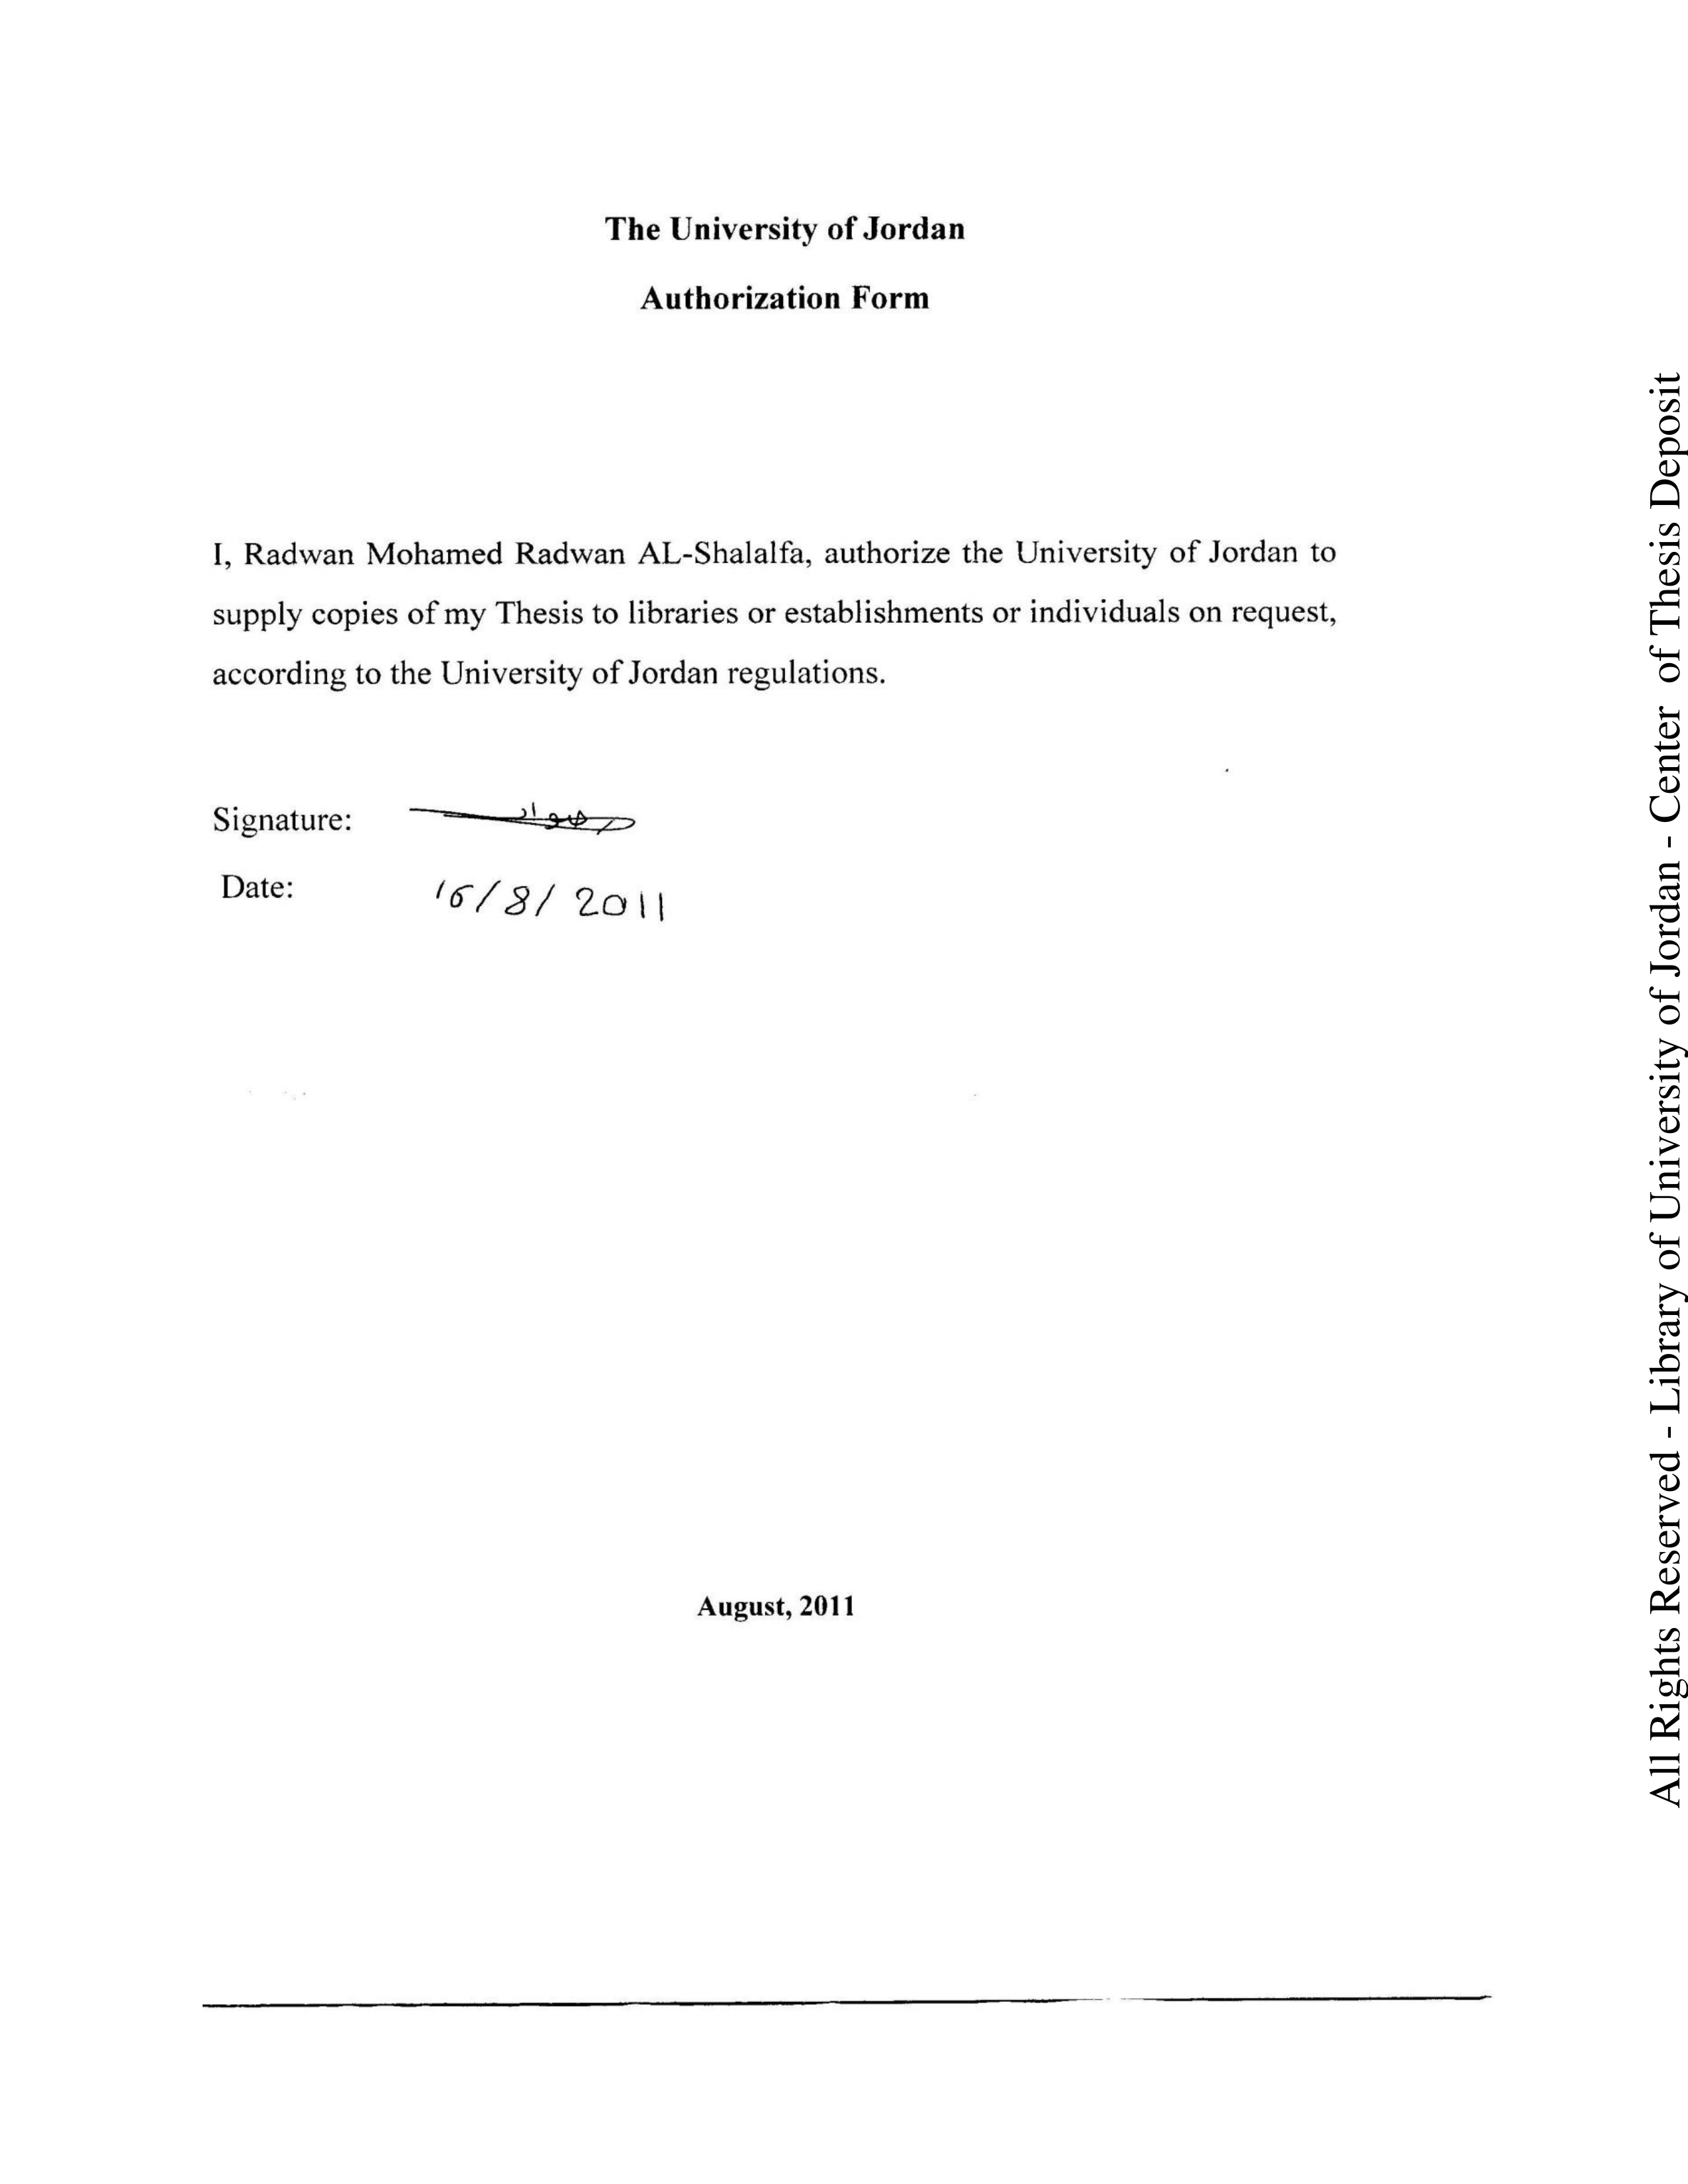 The University of Jordan
Authorization Form
I, Radwan Mohamed Radwan AL-Shalalfa, authorize the University of Jordan to
supply copies of my Thesis to libraries or establishments or individuals on request,
according to the University of Jordan regulations.
Signature:
Date: 16/8/2011
August, 2011
All Rights Reserved - Library of University of Jordan - Center of Thesis Deposit